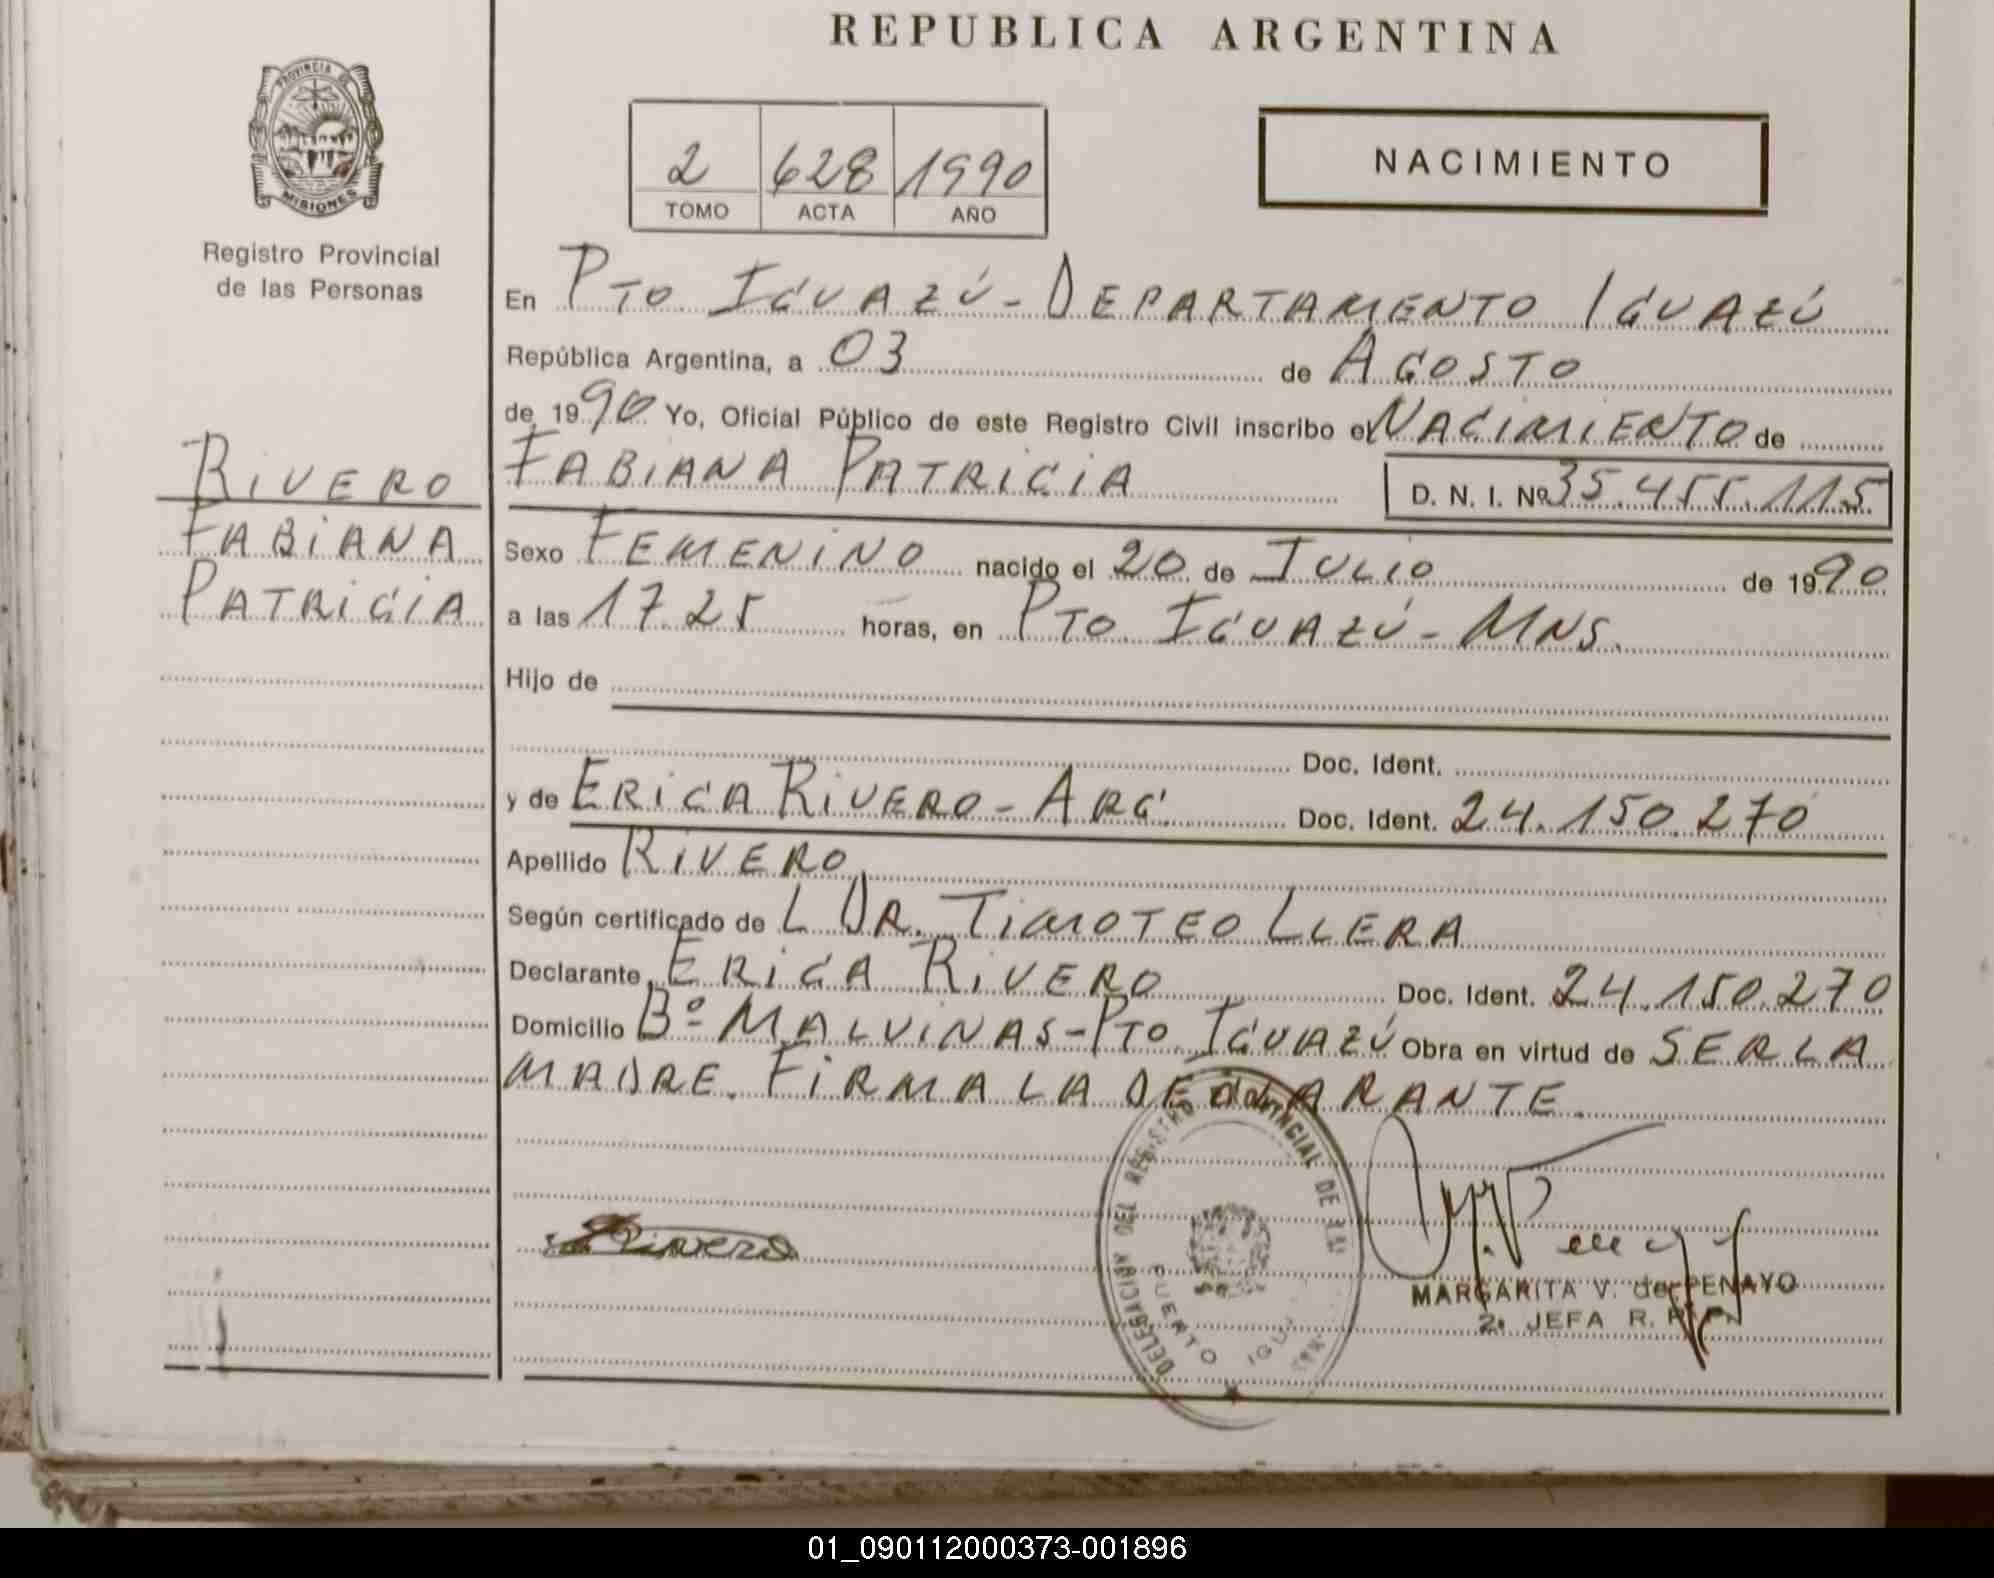 REPUBLICA ARGENTINA
PROVINCIA DE
MISIONES
Registro Provincial
de las Personas
2 628 1990
TOMO ACTA AÑO
NACIMIENTO
En PTO IGUAZÚ - DEPARTAMENTO IGUAZÚ
República Argentina, a 03 de AGOSTO
de 1990 Yo, Oficial Público de este Registro Civil inscribo el NACIMIENTO de
FABIANA PATRICIA D. N. I. Nº 35.455.115
RIVERO
FABIANA
PATRICIA
Sexo FEMENINO nacido el 20 de JULIO de 1990
a las 17 25 horas, en PTO IGUAZÚ - MNS.
Hijo de
Doc. Ident.
y de ERICA RIVERO - ARG. Doc. Ident. 24.150.270
Apellido RIVERO
Según certificado de L DR. TIMOTEO LLERA
Declarante ERICA RIVERO Doc. Ident. 24.150.270
Domicilio Bº MALVINAS - PTO IGUAZÚ Obra en virtud de SER LA
MADRE. FIRMA LA DECLARANTE.
Rivero
DELEGACION DEL REGISTRO PROVINCIAL DE LAS
PUERTO
MARGARITA V. de PENAYO
2ª JEFA R. P.
01_090112000373-001896